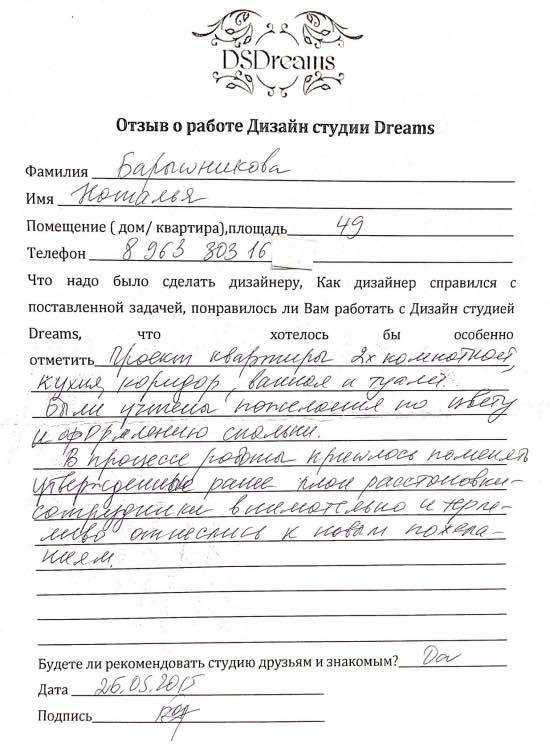 DSDreams
Отзыв о работе Дизайн студии Dreams
Фамилия Барышникова
Имя Наталья
Помещение ( дом/ квартира),площадь 49
Телефон 8 963 303 16
Что надо было сделать дизайнеру, Как дизайнер справился с
поставленной задачей, понравилось ли Вам работать с Дизайн студией
Dreams, что хотелось бы особенно
отметить Проект квартиры 2х комнатной,
кухня, коридор, ванная и туалет.
Были учтены пожелания по цвету
и оформлению спальни.
В процессе работы пришлось поменять
утвержденный ранее план расстановки-
сотрудники внимательно и терпе-
ливо отнеслись к новым пожела-
ниям.
Будете ли рекомендовать студию друзьям и знакомым? Да
Дата 26.05.2015
Подпись